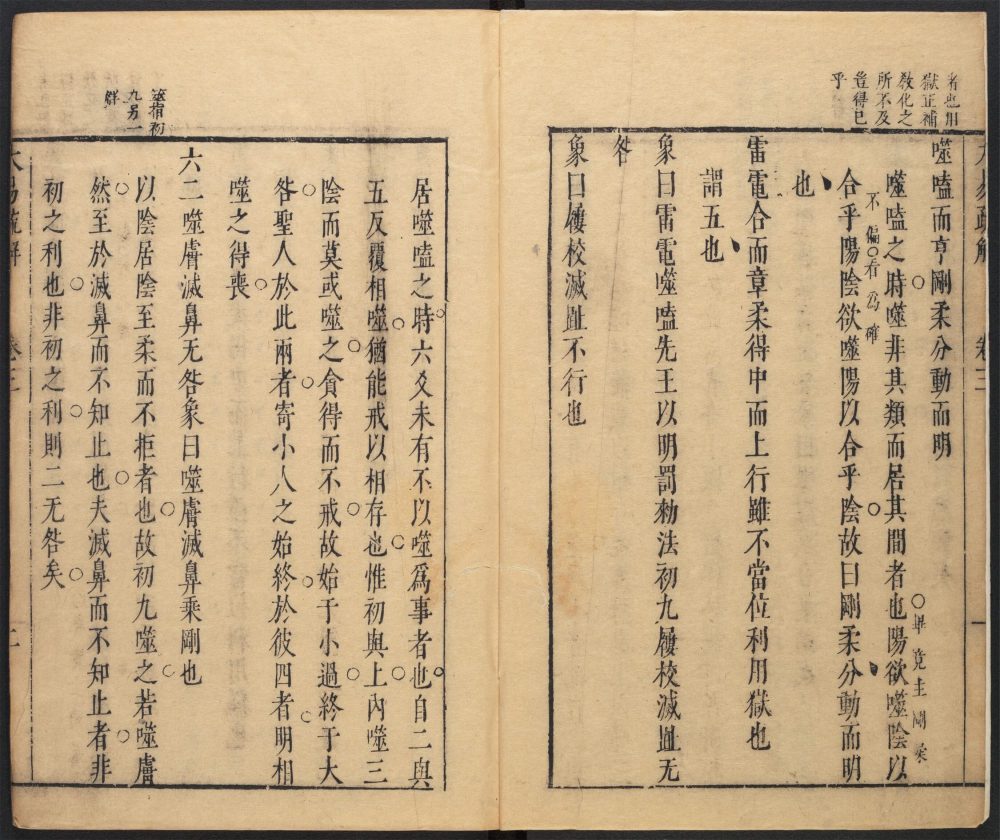 者也用
獄正補
敎化之
所不及
豈得已
乎
大易疏解 卷三 一
噬嗑而亨剛柔分動而明
噬嗑之時噬非其類而居其間者也陽欲噬陰以
不偏看爲確
畢竟主剛柔
合乎陽陰欲噬陽以合乎陰故曰剛柔分動而明
也
雷電合而章柔得中而上行雖不當位利用獄也
謂五也
象曰雷電噬嗑先王以明罰勑法初九屨校滅趾无
咎
象曰屨校滅趾不行也
噬指初
九另一
解
居噬嗑之時六爻未有不以噬爲事者也自二與
五反覆相噬猶能戒以相存也惟初與上內噬三
陰而莫或噬之貪得而不戒故始于小過終于大
咎聖人於此兩者寄小人之始終於彼四者明相
噬之得喪
六二噬膚滅鼻无咎象曰噬膚滅鼻乘剛也
以陰居陰至柔而不拒者也故初九噬之若噬膚
然至於滅鼻而不知止也夫滅鼻而不知止者非
初之利也非初之利則二无咎矣
大易疏解 卷三 二